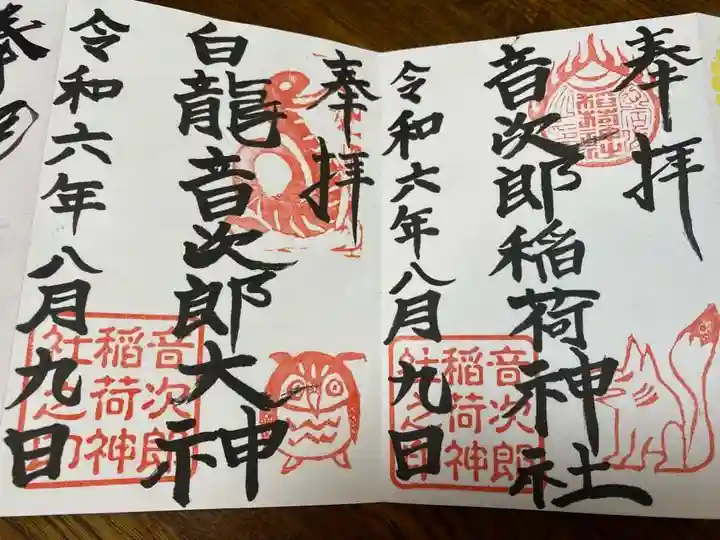 奉拝
音次郎稲荷神社
令和六年八月九日
音次郎
稲荷神
社之印
奉拝
白龍音次郎大神
令和六年八月九日
音次郎
稲荷神
社之印
奉拝